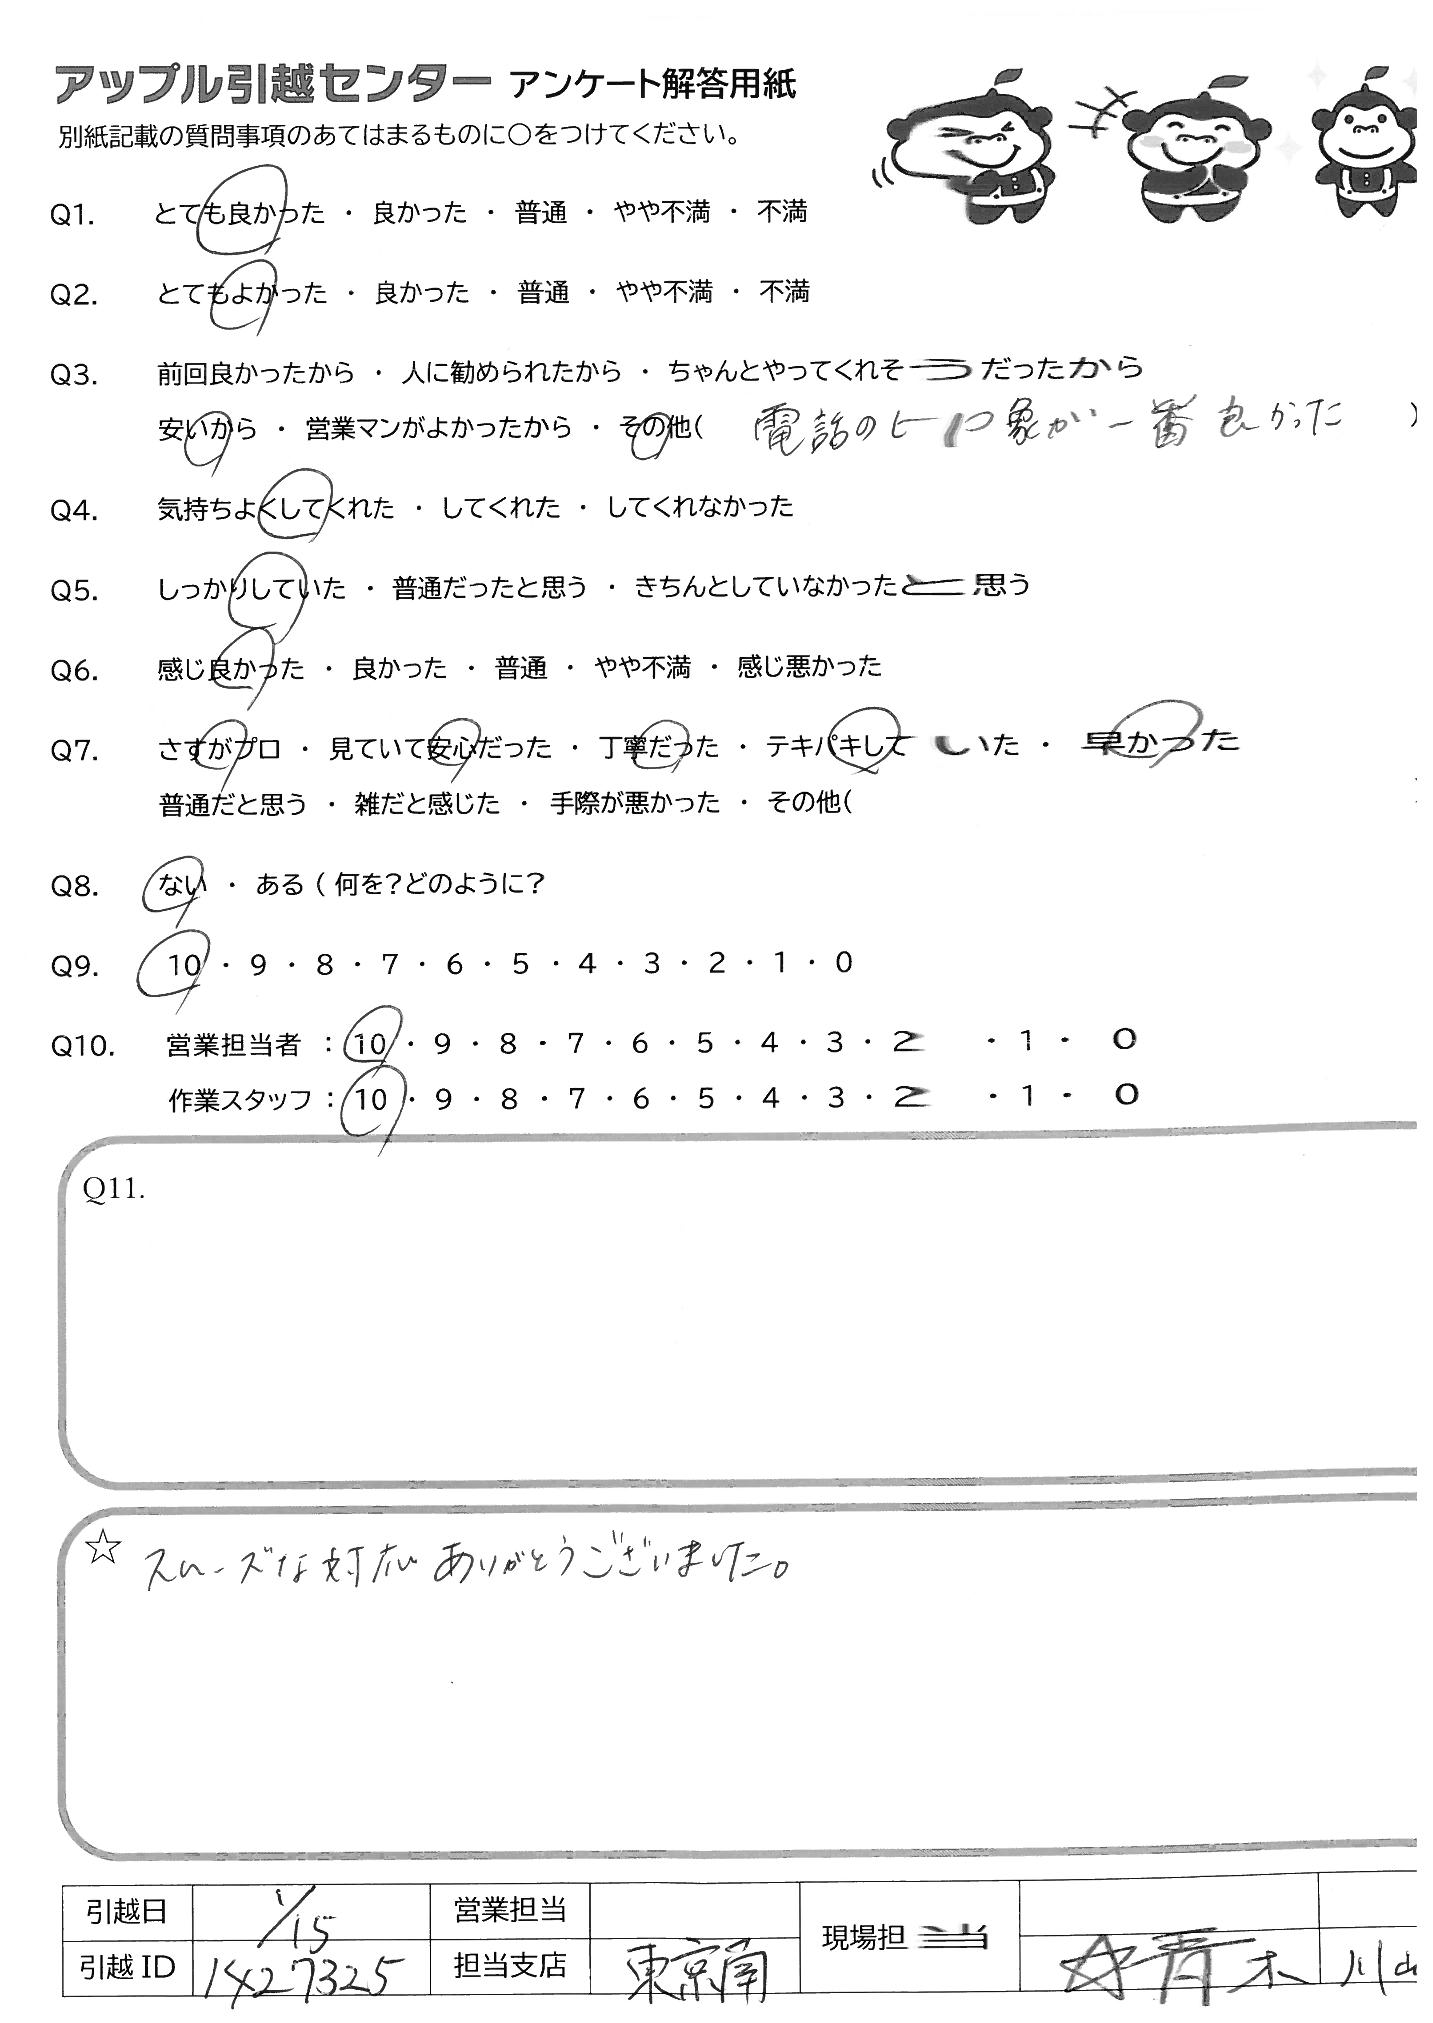 アップル引越センター アンケート解答用紙
別紙記載の質問事項のあてはまるものに○をつけてください。
Q1. とても良かった ・ 良かった ・ 普通 ・ やや不満 ・ 不満
Q2. とてもよかった ・ 良かった ・ 普通 ・ やや不満 ・ 不満
Q3. 前回良かったから ・ 人に勧められたから ・ ちゃんとやってくれそうだったから
安いから ・ 営業マンがよかったから ・ その他( 電話の印象が一番良かった )
Q4. 気持ちよくしてくれた ・ してくれた ・ してくれなかった
Q5. しっかりしていた ・ 普通だったと思う ・ きちんとしていなかったと思う
Q6. 感じ良かった ・ 良かった ・ 普通 ・ やや不満 ・ 感じ悪かった
Q7. さすがプロ ・ 見ていて安心だった ・ 丁寧だった ・ テキパキしていた ・ 早かった
普通だと思う ・ 雑だと感じた ・ 手際が悪かった ・ その他(
Q8. ない ・ ある ( 何を?どのように?
Q9. 10 ・ 9 ・ 8 ・ 7 ・ 6 ・ 5 ・ 4 ・ 3 ・ 2 ・ 1 ・ 0
Q10. 営業担当者 : 10 ・ 9 ・ 8 ・ 7 ・ 6 ・ 5 ・ 4 ・ 3 ・ 2 ・ 1 ・ 0
作業スタッフ : 10 ・ 9 ・ 8 ・ 7 ・ 6 ・ 5 ・ 4 ・ 3 ・ 2 ・ 1 ・ 0
Q11.
☆ スムーズな対応ありがとうございました。
引越日 1/15 営業担当 現場担当 ☆青木 川山
引越ID 1427325 担当支店 東京南